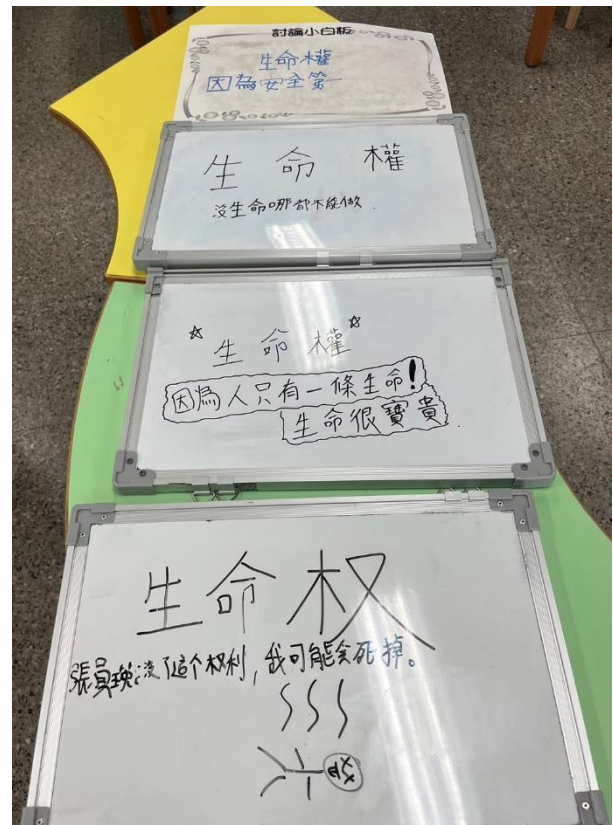 討論小白板
生命權
因為安全第一
生命權
沒生命哪都不能做.
☆生命權☆
因為人只有一條生命!
生命很寶貴.
生命权
張員瑛:没了這个权利,我可能会死掉。